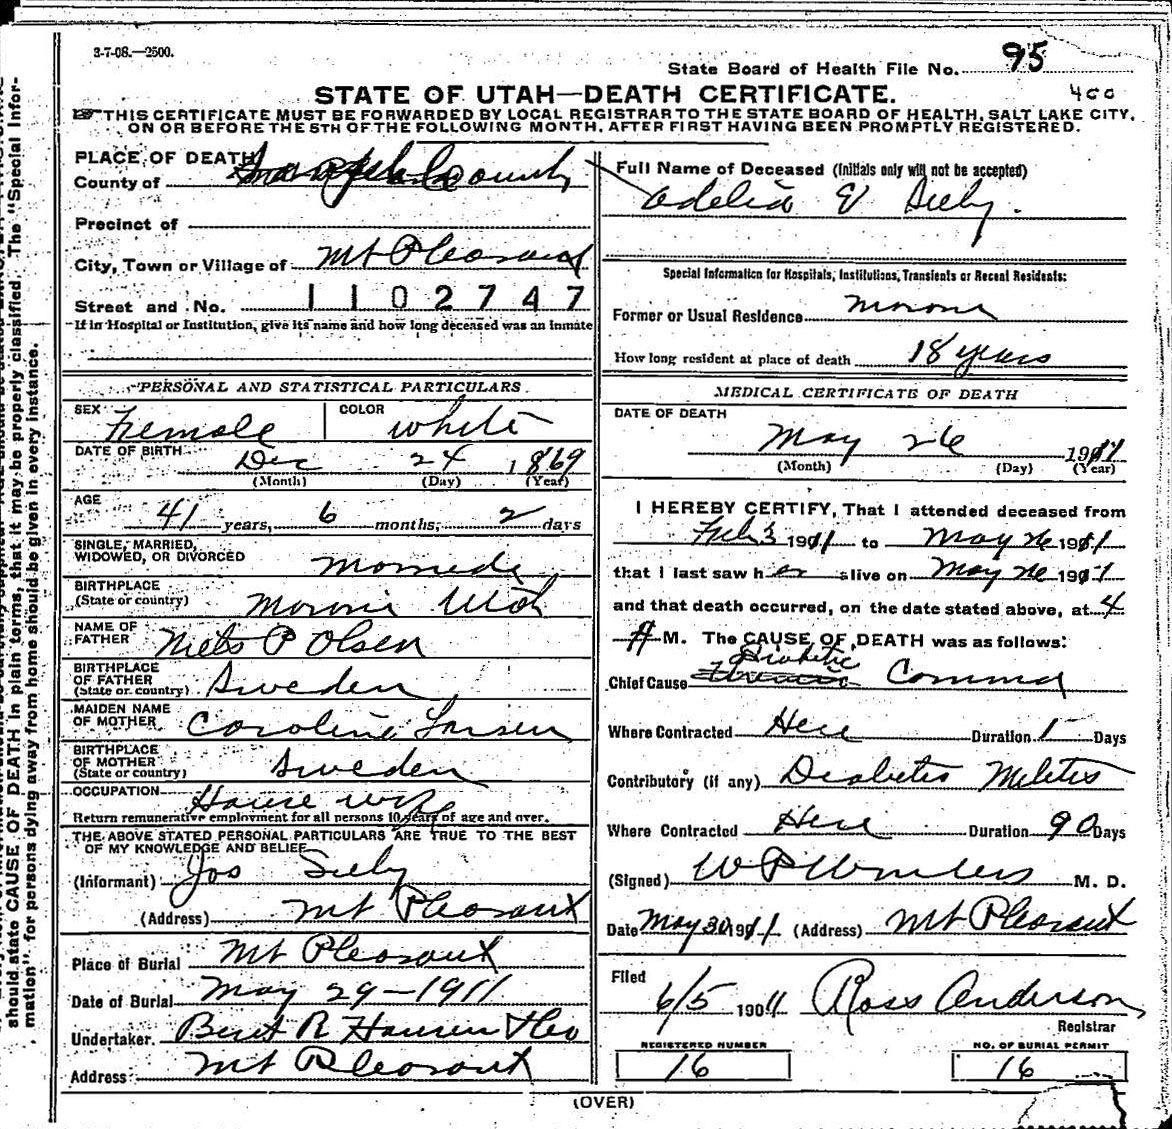 3-7-08.—2500.
State Board of Health File No. 95
400
STATE OF UTAH—DEATH CERTIFICATE.
THIS CERTIFICATE MUST BE FORWARDED BY LOCAL REGISTRAR TO THE STATE BOARD OF HEALTH, SALT LAKE CITY,
ON OR BEFORE THE 5TH OF THE FOLLOWING MONTH, AFTER FIRST HAVING BEEN PROMPTLY REGISTERED.
PLACE OF DEATH
County of Sanpete County
Precinct of
City, Town or Village of Mt Pleasant
Street and No. 1102747
If in Hospital or Institution, give its name and how long deceased was an inmate
PERSONAL AND STATISTICAL PARTICULARS
SEX Female COLOR White
DATE OF BIRTH Dec 24 1869
(Month) (Day) (Year)
AGE 41 years, 6 months, 2 days
SINGLE, MARRIED,
WIDOWED, OR DIVORCED
BIRTHPLACE
(State or country) Moroni Utah
NAME OF
FATHER Niels P Olsen
BIRTHPLACE
OF FATHER
(State or country) Sweden
MAIDEN NAME
OF MOTHER Caroline Larsen
BIRTHPLACE
OF MOTHER
(State or country) Sweden
OCCUPATION House wife
Return remunerative employment for all persons 10 years of age and over.
THE ABOVE STATED PERSONAL PARTICULARS ARE TRUE TO THE BEST
OF MY KNOWLEDGE AND BELIEF
(Informant) Jos Seely
(Address) Mt Pleasant
Place of Burial Mt Pleasant
Date of Burial May 29-1911
Undertaker. Bent R Hansen & Co
Address: Mt Pleasant
Full Name of Deceased (Initials only will not be accepted)
Adelia E Seely.
Special Information for Hospitals, Institutions, Transients or Recent Residents:
Former or Usual Residence Moroni
How long resident at place of death 18 years
MEDICAL CERTIFICATE OF DEATH
DATE OF DEATH
May 26 1911
(Month) (Day) (Year)
I HEREBY CERTIFY, That I attended deceased from
Feb 3 1911 to May 26 1911
that I last saw her alive on May 26 1911
and that death occurred, on the date stated above, at 4
A M. The CAUSE OF DEATH was as follows:
Diabetic
Chief Cause Comma
Where Contracted Here Duration 1 Days
Contributory (if any) Diabetis Melitis
Where Contracted Here Duration 90 Days
(Signed) W P Winters M. D.
Date May 30 1911 (Address) Mt Pleasant
Filed
6/5 1911 Ross Anderson
Registrar
REGISTERED NUMBER NO. OF BURIAL PERMIT
16 16
(OVER)
should state CAUSE OF DEATH in plain terms, that it may be properly classified. The "Special Infor-
mation" for persons dying away from home should be given in every instance.